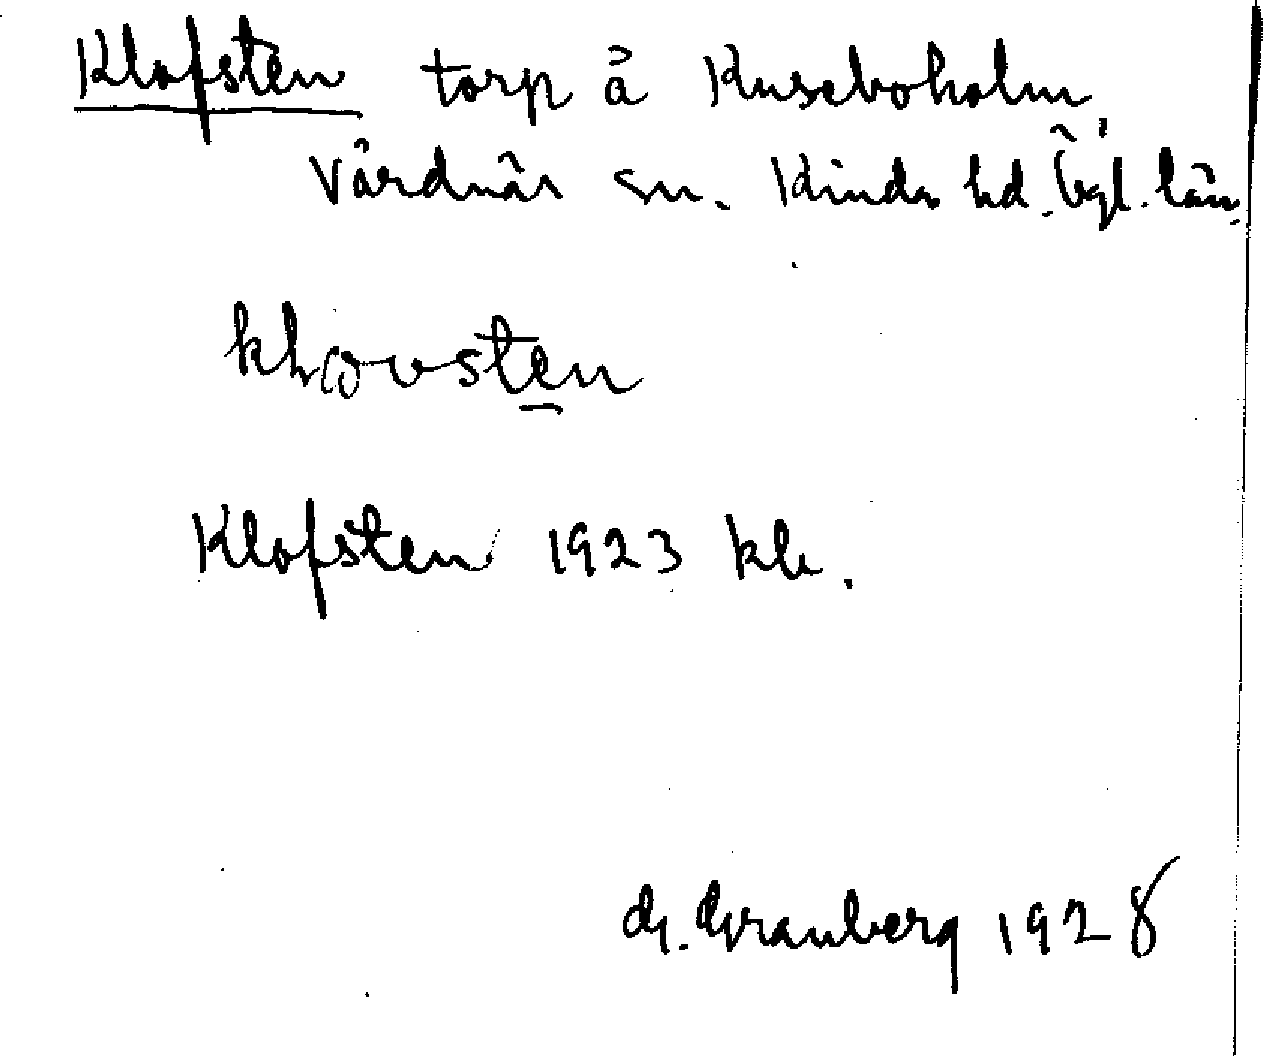 Klofsten torp å Kuseboholm,
Vårdnäs sn. Kinda hd. Ögl. län.
Klofsten 1923 kb.
G. Granberg 1928